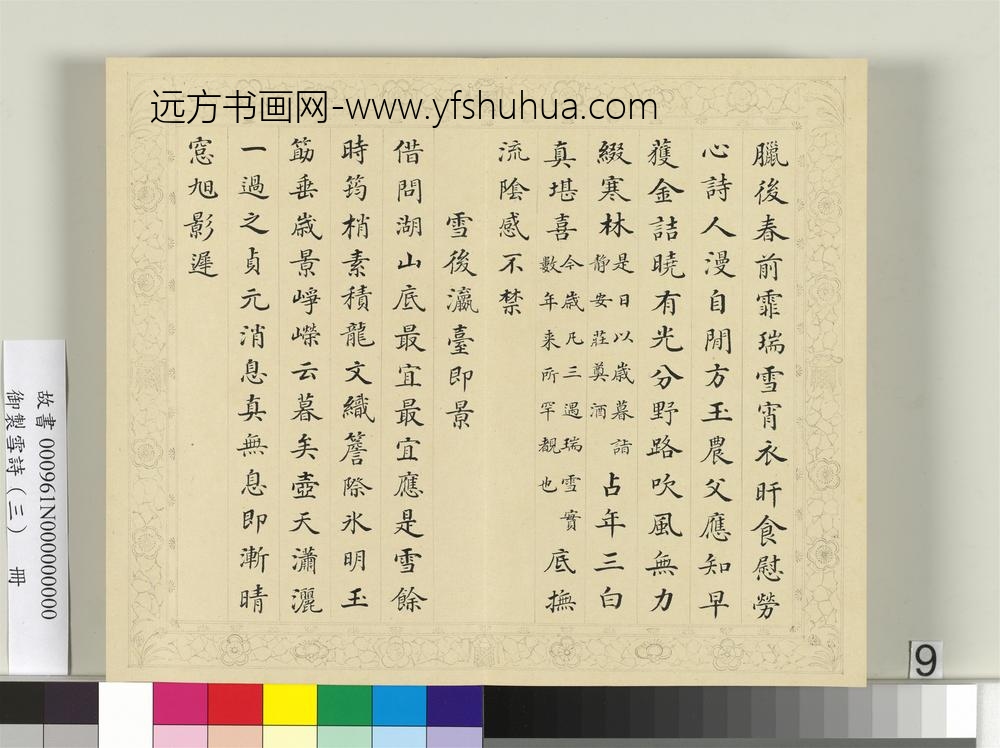 远方书画网-www.yfshuhua.com
臘後春前霏瑞雪宵衣旰食慰勞
心詩人漫自閒方玉農父應知早
獲金詰曉有光分野路吹風無力
綴寒林是日以歲暮詣靜安莊奠酒占年三白
真堪喜今歲凡三遇瑞雪實數年来所罕覯也底撫
流陰感不禁
雪後瀛臺即景
借問湖山底最宜最宜應是雪餘
時筠梢素積龍文織簷際氷明玉
筯垂歲景崢嶸云暮矣壺天瀟灑
一過之貞元消息真無息即漸晴
窓旭影遲
故書 000961N000000000
御製雪詩(三) 冊
9